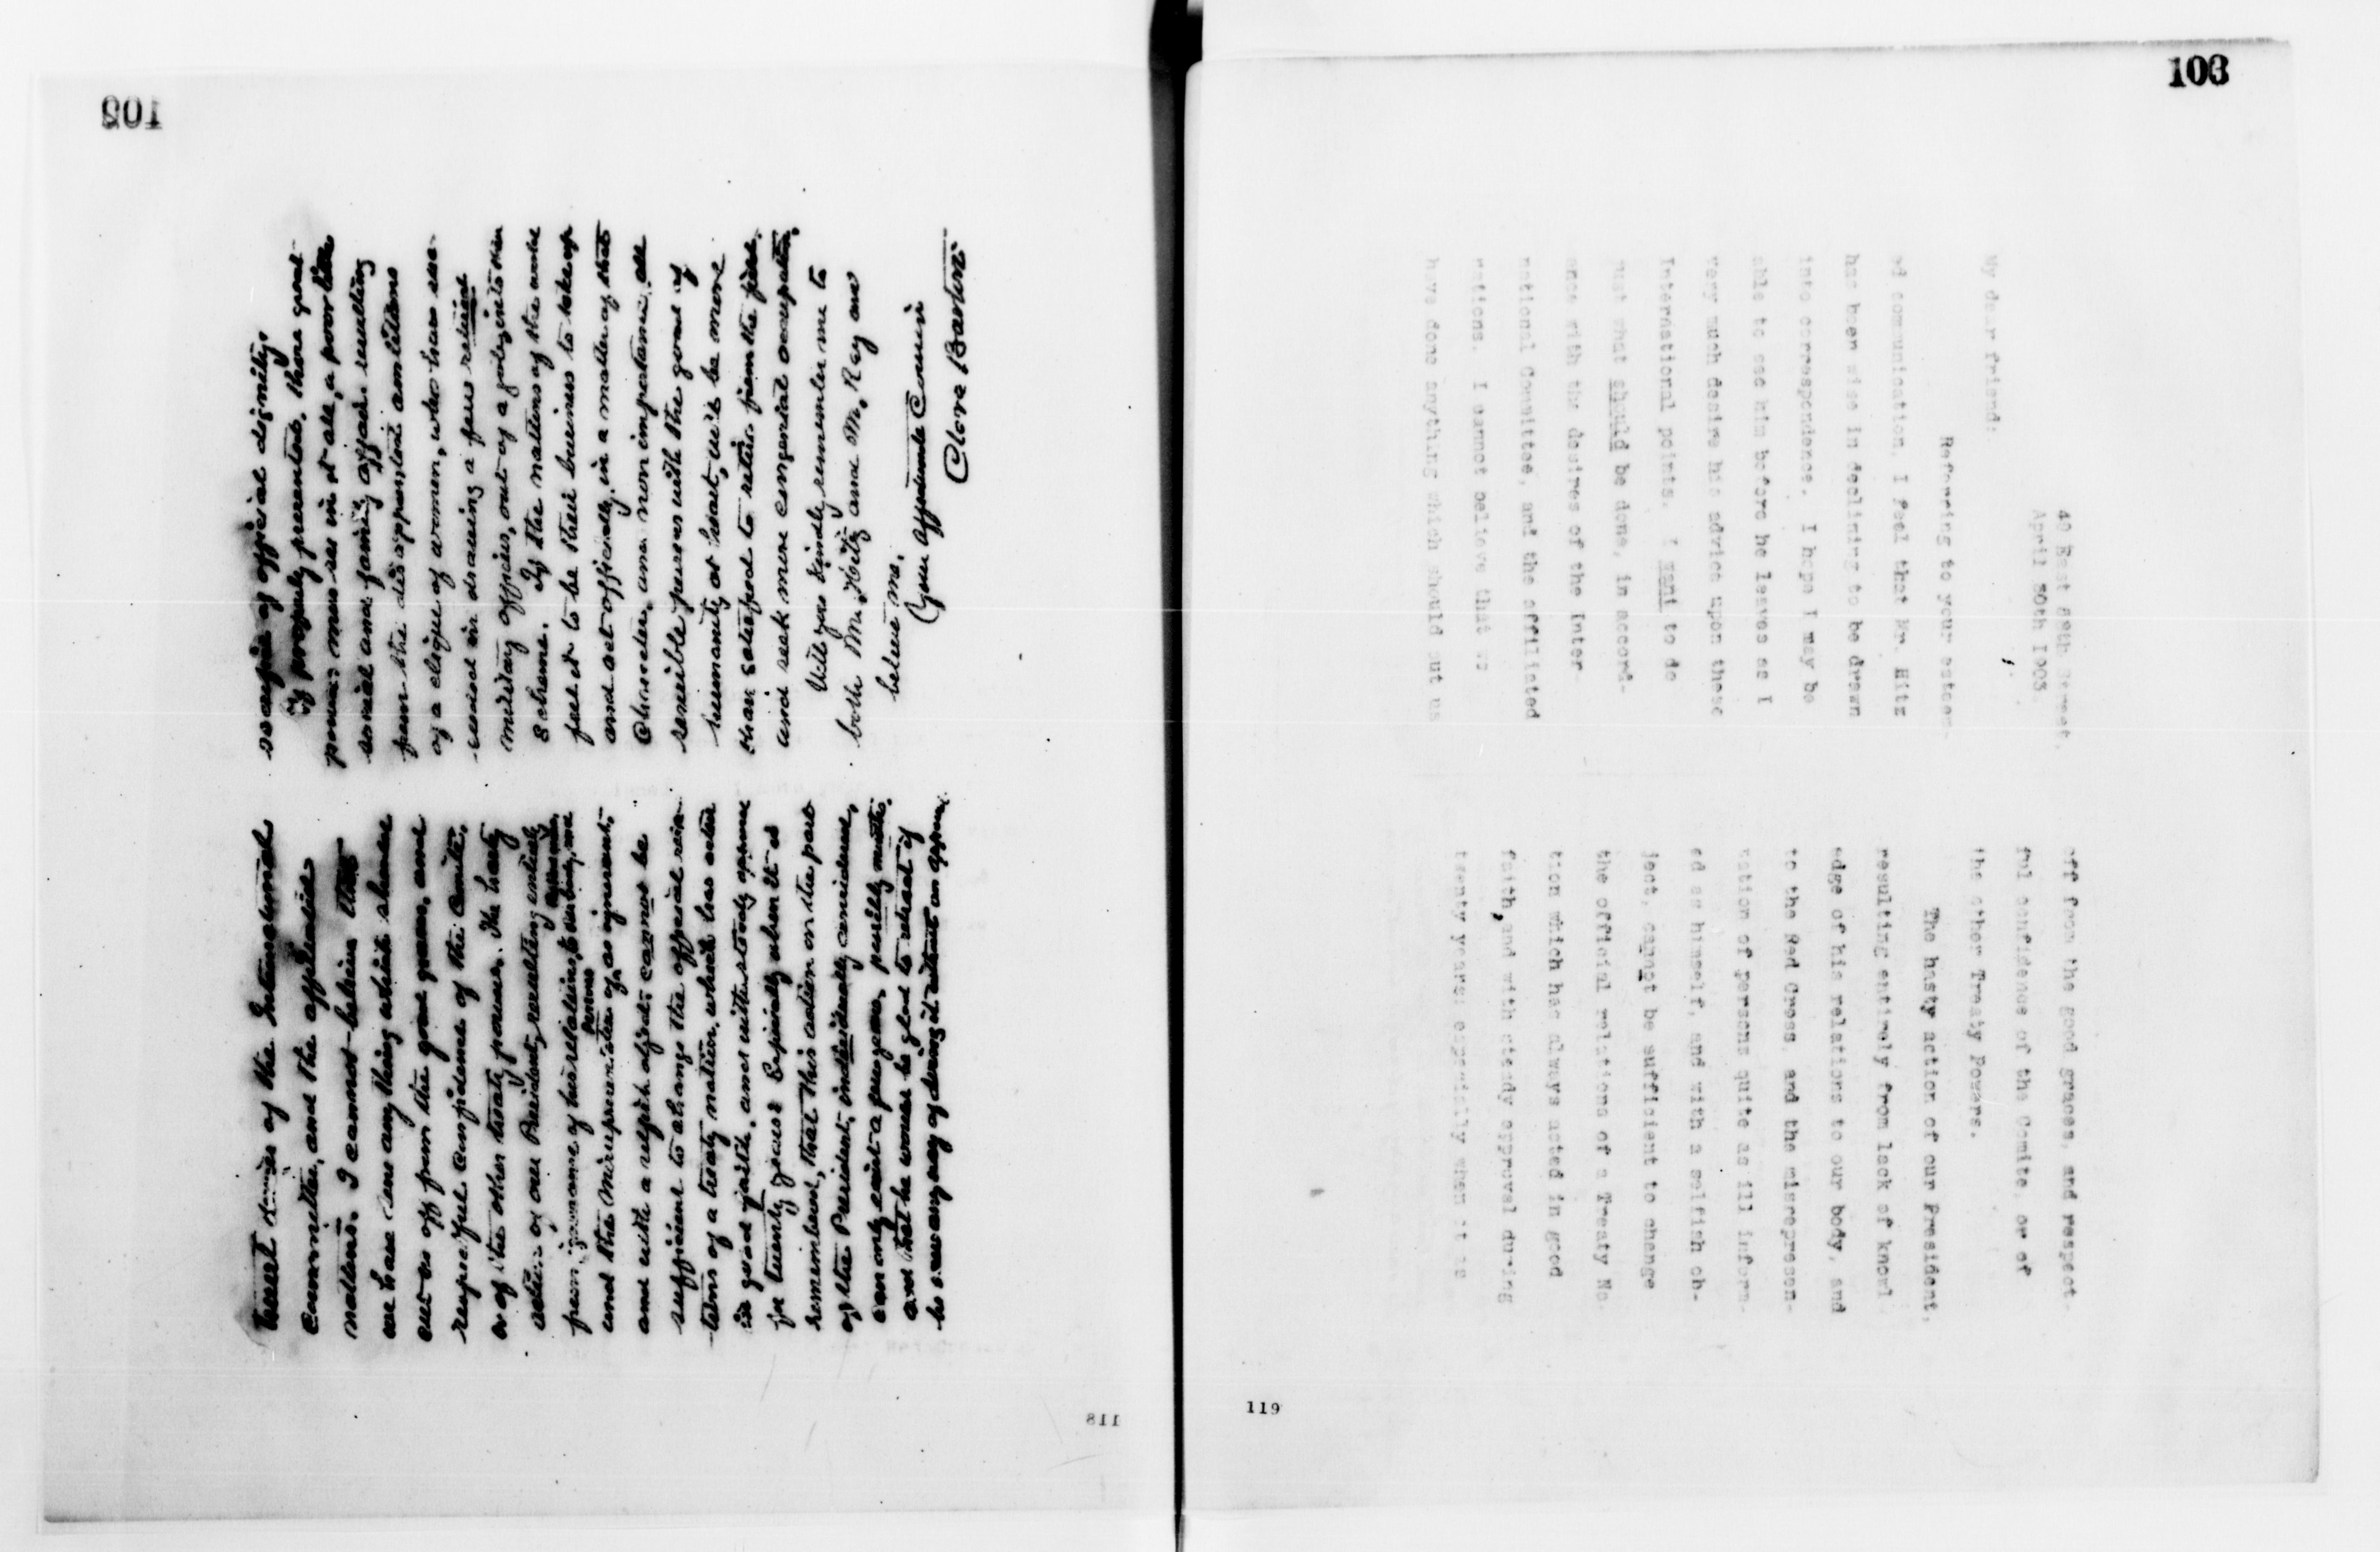 103
want desires of the International
Committee, and the affiliated
nations. I cannot believe that
we have done anything which should
cut us off from the good graces, and
respectful confidence of the Comité,
or of the other treaty powers. The hasty
action of our President, resulting entirely
from ignorance of his relations to our body, and
and the misrepresentation of persons as ignorant,
and with a selfish object, cannot be
sufficient to change the official rela-
tions of a treaty nation, which has acted
in good faith, and with steady approval
for twenty years: Especially when it is
remembered, that this action on the part
of the President, individually considered,
can only exist a few years, possibly months,
and that he would be glad to retreat if
he saw any way of doing it without an appear-
ance of official dignity.
If properly presented, these great
powers must see in it all, a poor little
social and family affair, resulting
from the disappointed ambitions
of a clique of women, who have suc-
ceeded in drawing a few retired
military officers, out of a job, into their
scheme. If the nations of the world
feel it to be their business to take up
and act officially, in a matter of that
character, and non importance, all
sensible persons with the good of
humanity at heart, will be more
than satisfied to retire from the field,
and seek more congenial occupation.
Will you kindly remember me to
both Mr. Hitz and Mr. Ray and
believe me,
Your affectionate Cousin
Clara Barton
118
103
49 East Street,
April 30th 1903.
My dear friend:
Referring to your esteem-
ed communication, I feel that Mr. Hitz
has been wise in declining to be drawn
into correspondence. I hope I may be
able to see him before he leaves as I
very much desire his advice upon these
International points. I want to do
just what should be done, in accord-
ance with the desires of the Inter-
national Committee, and the affiliated
nations. I cannot believe that we
have done anything which should cut us
off from the good graces, and respect-
ful confidence of the Comite, or of
the other Treaty Powers.
The hasty action of our President,
resulting entirely from lack of knowl-
edge of his relations to our body, and
to the Red Cross, and the misrepresen-
tation of persons quite as ill inform-
ed as himself, and with a selfish ob-
ject, cannot be sufficient to change
the official relations of a Treaty Na-
tion which has always acted in good
faith, and with steady approval during
twenty years: especially when it is
119